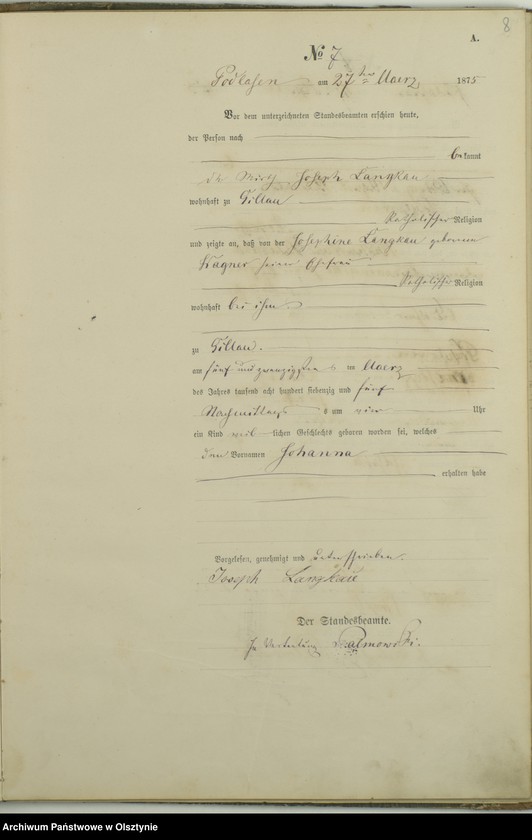 8
A.
No 7
Podlasen am 27ten Maerz 1875
Vor dem unterzeichneten Standesbeamten erschien heute,
der Person nach
bekannt
der Wirth Joseph Langkau
wohnhaft zu Gillau
Katholischer Religion
und zeigte an, daß von der Josephine Langkau geborene
Wagner seiner Ehefrau
Katholischer Religion
wohnhaft bei ihm
zu Gillau.
am fünf und zwanzigsten im Maerz
des Jahres tausend acht hundert siebenzig und fünf
Nachmittags um vier Uhr
ein Kind weiblichen Geschlechts geboren worden sei, welches
den Vornamen Johanna
erhalten habe
Vorgelesen, genehmigt und unterschrieben.
Joseph Langkau
Der Standesbeamte.
In Vertretung
Archiwum Państwowe w Olsztynie